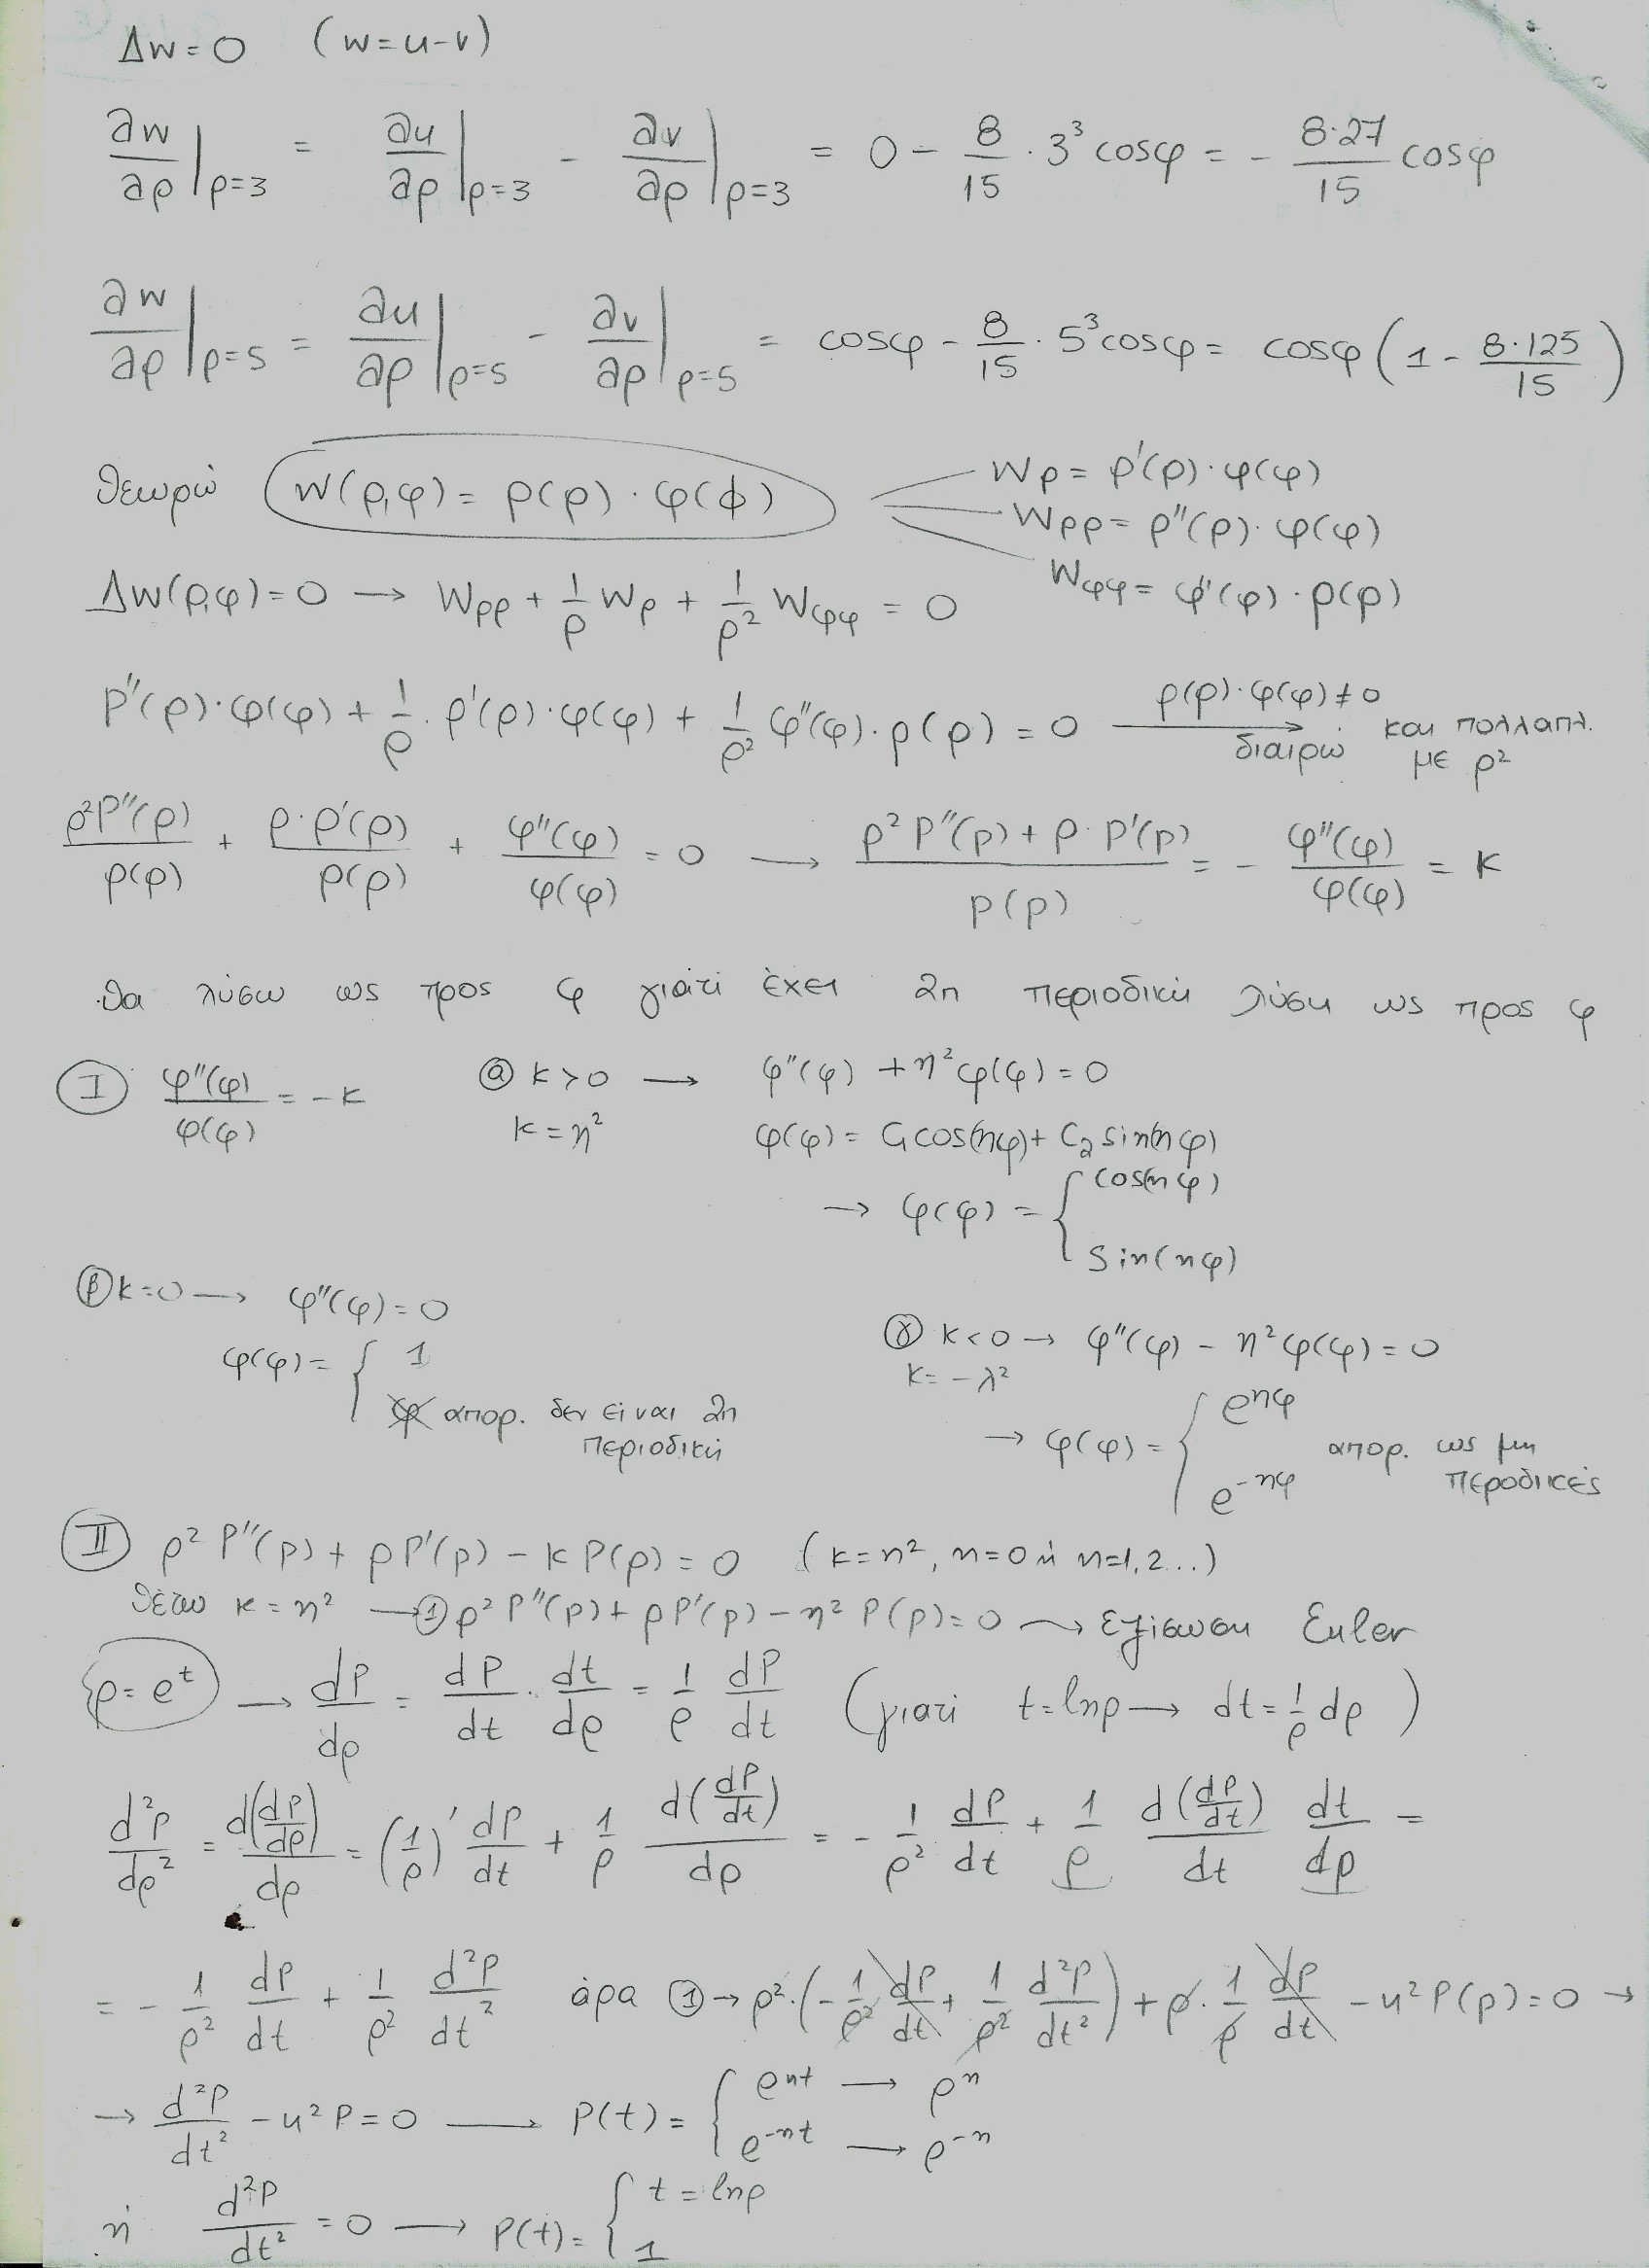 Δw = 0 (w = u-v)
∂w/∂ρ|ρ=3 = ∂u/∂ρ|ρ=3 - ∂v/∂ρ|ρ=3 = 0 - 8/15 · 3³ cosφ = - 8·27/15 cosφ
∂w/∂ρ|ρ=5 = ∂u/∂ρ|ρ=5 - ∂v/∂ρ|ρ=5 = cosφ - 8/15 · 5³ cosφ = cosφ (1 - 8·125/15)
Θεωρώ w(ρ,φ) = ρ(ρ) · φ(ϕ)
Wρ = ρ'(ρ) · φ(φ)
Wρρ = ρ''(ρ) · φ(φ)
Wφφ = φ''(φ) · ρ(ρ)
Δw(ρ,φ) = 0 → Wρρ + 1/ρ Wρ + 1/ρ² Wφφ = 0
P''(ρ) · φ(φ) + 1/ρ · ρ'(ρ) · φ(φ) + 1/ρ² φ''(φ) · ρ(ρ) = 0 → ρ(ρ) · φ(φ) ≠ 0 διαιρώ και πολλαπλ. με ρ²
ρ²P''(ρ)/ρ(ρ) + ρ·ρ'(ρ)/ρ(ρ) + φ''(φ)/φ(φ) = 0 → ρ²P''(ρ) + ρ·P'(ρ)/P(ρ) = - φ''(φ)/φ(φ) = κ
Θα λύσω ως προς φ γιατί έχει 2π περιοδική λύση ως προς φ
Ⅰ φ''(φ)/φ(φ) = -κ
ⓐ κ > 0 → φ''(φ) + n²φ(φ) = 0
κ = n² φ(φ) = C₁cos(nφ) + C₂sin(nφ)
→ φ(φ) = { cos(nφ)
sin(nφ)
ⓑ κ = 0 → φ''(φ) = 0
φ(φ) = { 1
φ απορ. δεν είναι 2π περιοδική
ⓨ κ < 0 → φ''(φ) - n²φ(φ) = 0
κ = -λ²
→ φ(φ) = { e^{nφ}
e^{-nφ} απορ. ως μη περοδικές
Ⅱ ρ²P''(ρ) + ρP'(ρ) - κP(ρ) = 0 (κ = n², n = 0 ή n = 1,2...)
θέτω κ = n² → ① ρ²P''(ρ) + ρP'(ρ) - n²P(ρ) = 0 → εξίσωση Euler
ρ = e^t → dP/dρ = dP/dt · dt/dρ = 1/ρ dP/dt (γιατί t = lnρ → dt = 1/ρ dρ)
d²P/dρ² = d(dP/dρ)/dρ = (1/ρ)' dP/dt + 1/ρ d(dP/dt)/dρ = - 1/ρ² dP/dt + 1/ρ d(dP/dt)/dt dt/dρ =
= - 1/ρ² dP/dt + 1/ρ² d²P/dt² άρα ① → ρ²·(- 1/ρ² dP/dt + 1/ρ² d²P/dt²) + ρ · 1/ρ dP/dt - n²P(ρ) = 0 →
→ d²P/dt² - n²P = 0 → P(t) = { e^{nt} → ρ^n
e^{-nt} → ρ^{-n}
ή d²P/dt² = 0 → P(t) = { t = lnρ
1